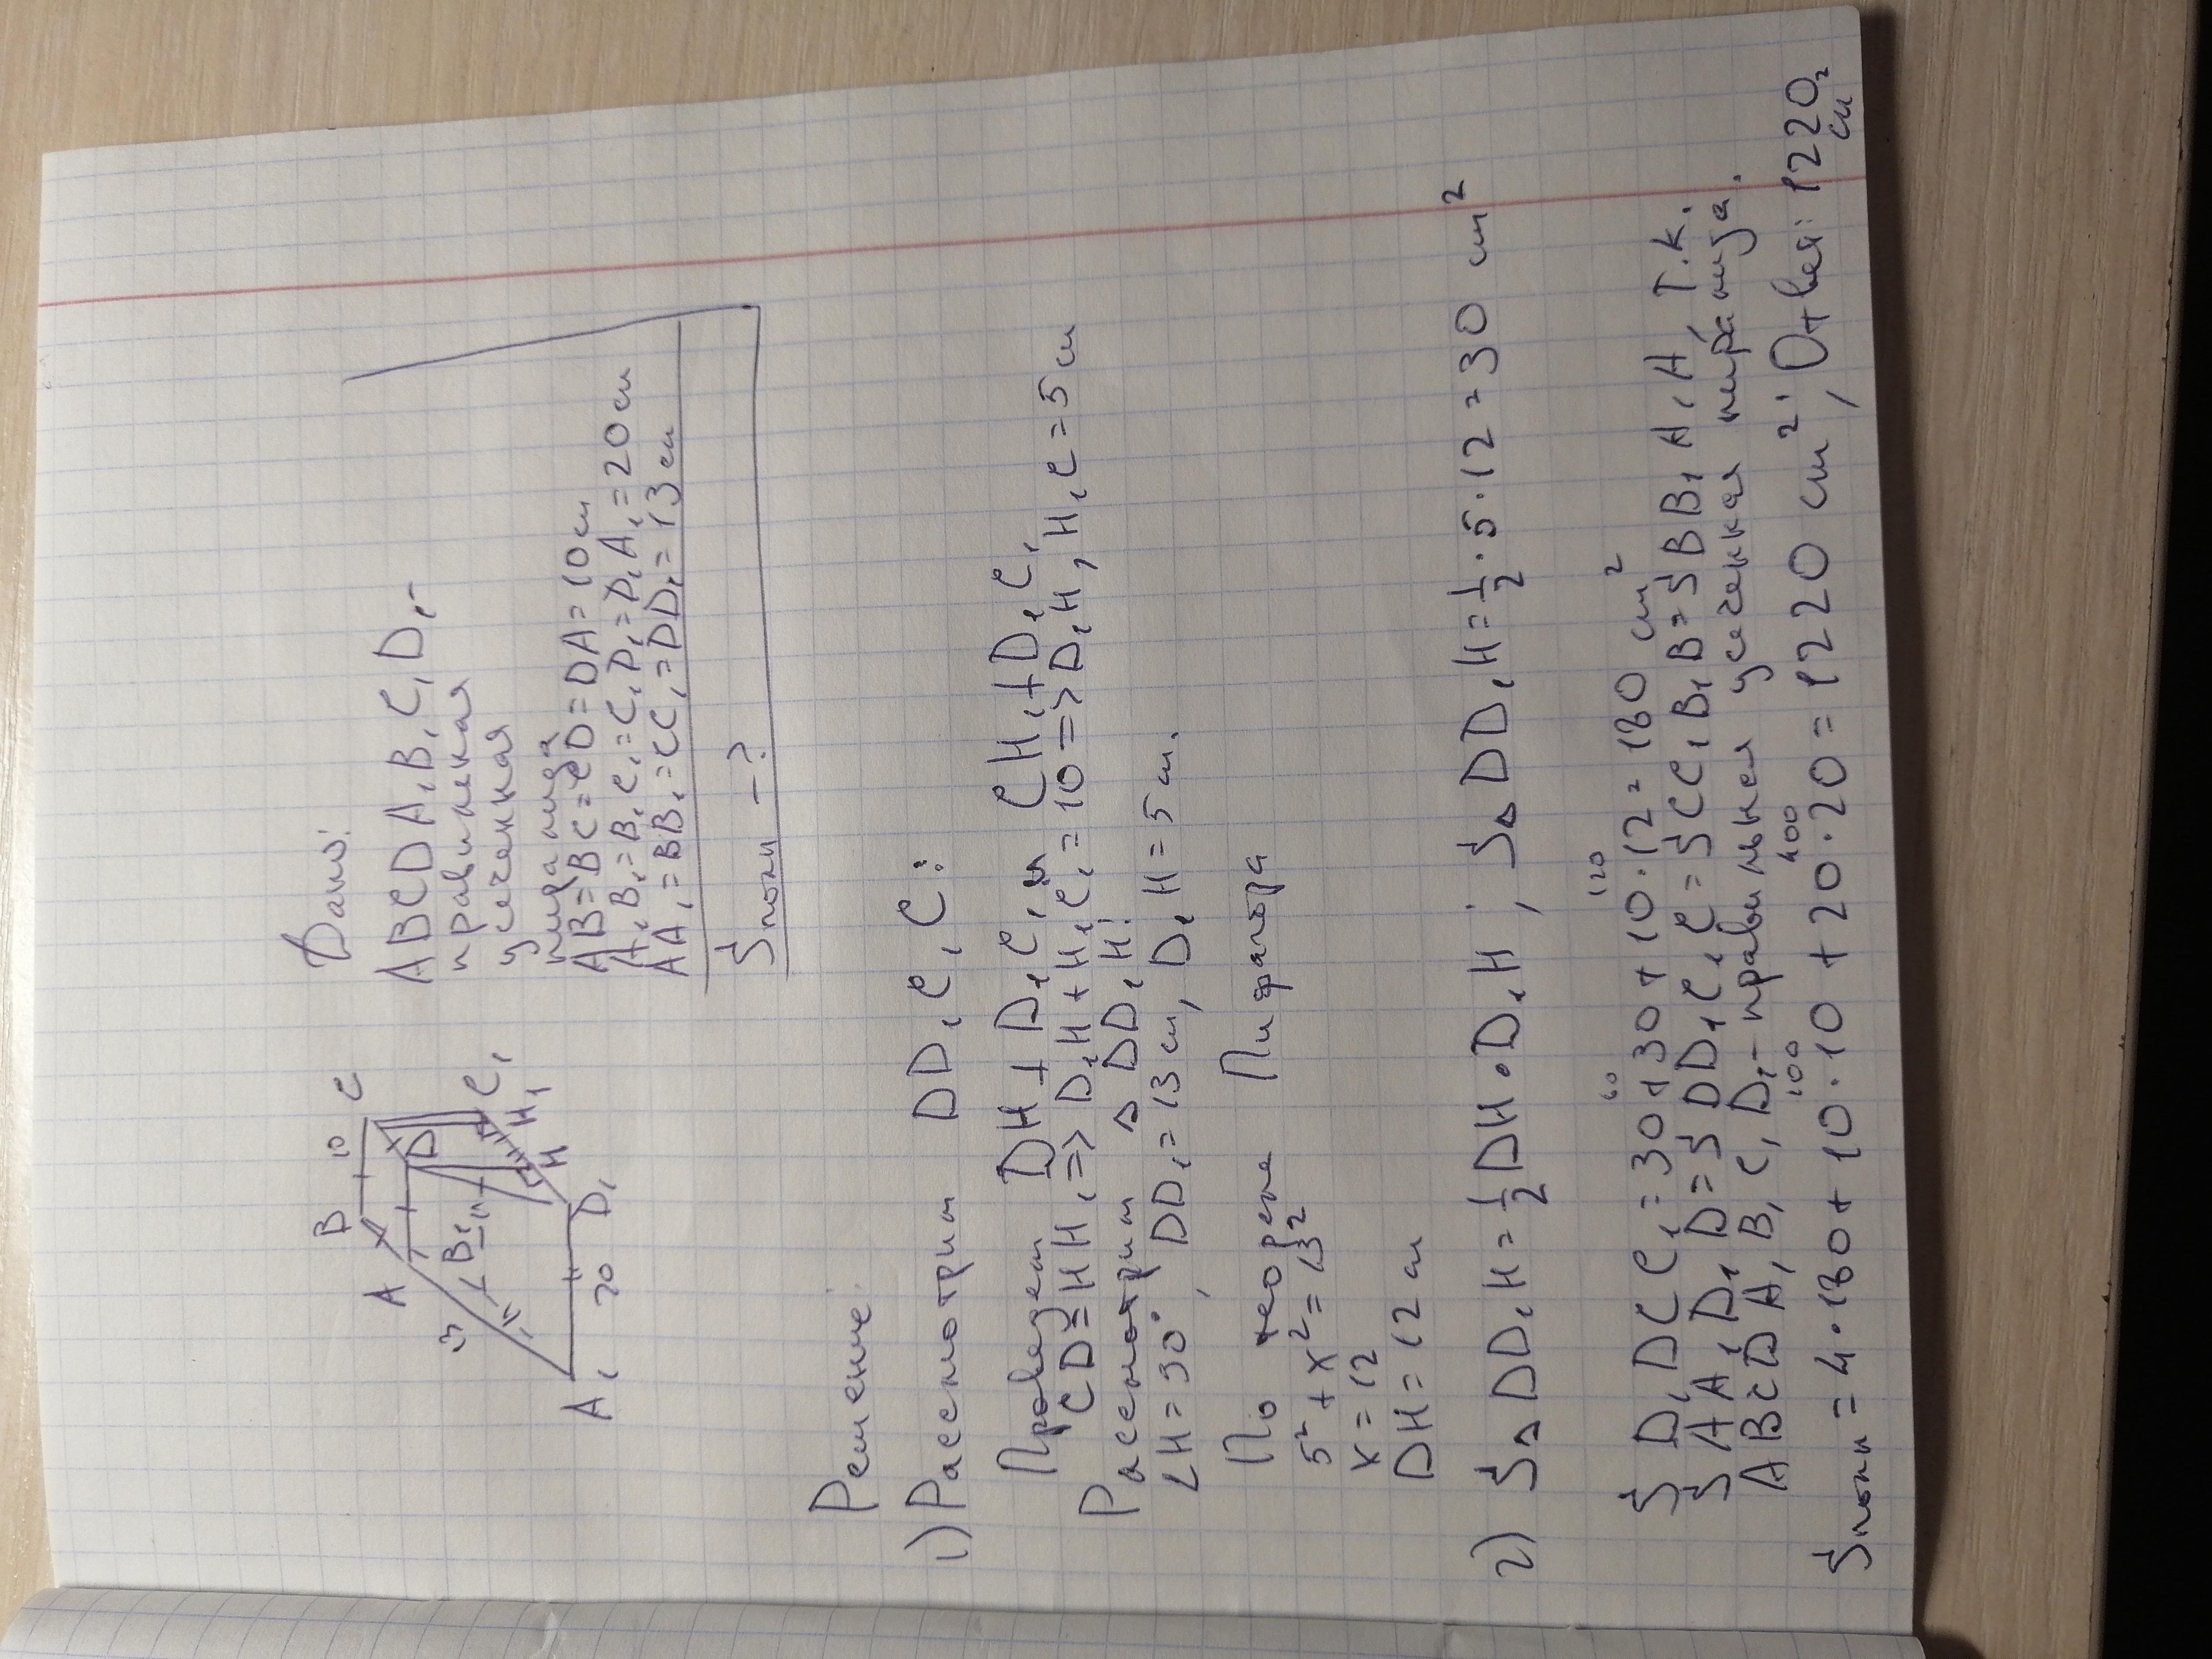 Дано:
ABCDA₁B₁C₁D₁-
правильная
усеченная
пирамида
AB=BC=CD=DA=10см
A₁B₁=B₁C₁=C₁D₁=D₁A₁=20см
AA₁=BB₁=CC₁=DD₁=13см
Sполн -?
B 10 C
A D
13 B₁ C₁
H₁
H
A₁ 20 D₁
Решение:
1) Рассмотрим DD₁C₁C:
Проведем DH⊥D₁C₁ и CH₁⊥D₁C₁
CD=HH₁=>D₁H+H₁C₁=10=>D₁H,H₁C=5см
Рассмотрим ΔDD₁H:
∠H=90°, DD₁=13см, D₁H=5см.
По теореме Пифагора
5²+x²=13²
x=12
DH=12см
2) SΔDD₁H=½DH·D₁H; SΔDD₁H=½·5·12=30 см²
60 120
SD₁DCC₁=30+30+10·12=180 см²
SAA₁D₁D=SDD₁C₁C=SCC₁B₁B=SBB₁A₁A т.к.
ABCDA₁B₁C₁D₁-правильная усеченная пирамида.
100 400
Sполн=4·180+10·10+20·20=1220 см²; Ответ: 1220
см²